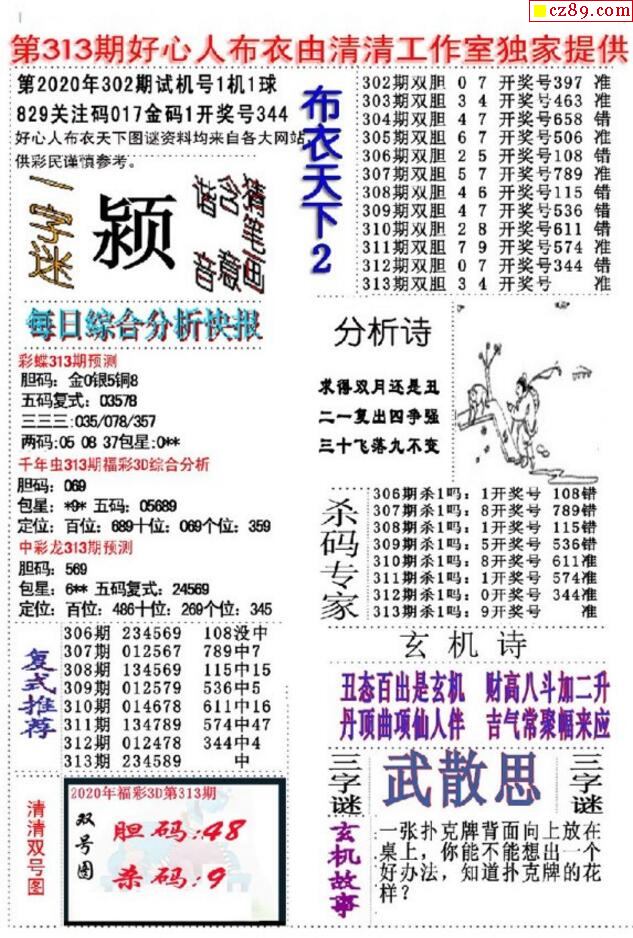 cz89.com
第313期好心人布衣由清清工作室独家提供
第2020年302期试机号1机1球
829关注码017金码1开奖号344
好心人布衣天下图谜资料均来自各大网站
供彩民谨慎参考。
一字谜
颍
猜笔画
含意
谐音
每日综合分析快报
彩蝶313期预测
胆码：金0银5铜8
五码复式：03578
三三三:035/078/357
两码:05 08 37包星:0**
千年虫313期福彩3D综合分析
胆码：069
包星：*9* 五码：05689
定位：百位：689十位：069个位：359
中彩龙313期预测
胆码：569
包星：6** 五码复式：24569
定位：百位：486十位：269个位：345
复式推荐
306期 234569 108没中
307期 012567 789中7
308期 134569 115中15
309期 012579 536中5
310期 014678 611中16
311期 134789 574中47
312期 012478 344中4
313期 234589 中
清清双号图
2020年福彩3D第313期
双号图
胆码:48
杀码:9
布衣天下2
302期双胆 0 7 开奖号397 准
303期双胆 3 4 开奖号463 准
304期双胆 4 7 开奖号658 错
305期双胆 6 7 开奖号506 准
306期双胆 2 5 开奖号108 错
307期双胆 5 7 开奖号789 准
308期双胆 4 6 开奖号115 错
309期双胆 4 7 开奖号536 错
310期双胆 2 8 开奖号611 错
311期双胆 7 9 开奖号574 准
312期双胆 0 7 开奖号344 错
313期双胆 3 4 开奖号 准
分析诗
求得双月还是丑
二一复出四争强
三十飞落九不变
杀码专家
306期杀1吗：1开奖号 108错
307期杀1吗：8开奖号 789错
308期杀1吗：1开奖号 115错
309期杀1吗：5开奖号 536错
310期杀1吗：8开奖号 611准
311期杀1吗：1开奖号 574准
312期杀1吗：0开奖号 344准
313期杀1吗：9开奖号 准
玄机诗
丑态百出是玄机 财高八斗加二升
丹顶曲项仙人伴 吉气常聚幅来应
三字谜
武散思
三字谜
玄机故事
一张扑克牌背面向上放在
桌上，你能不能想出一个
好办法，知道扑克牌的花
样？